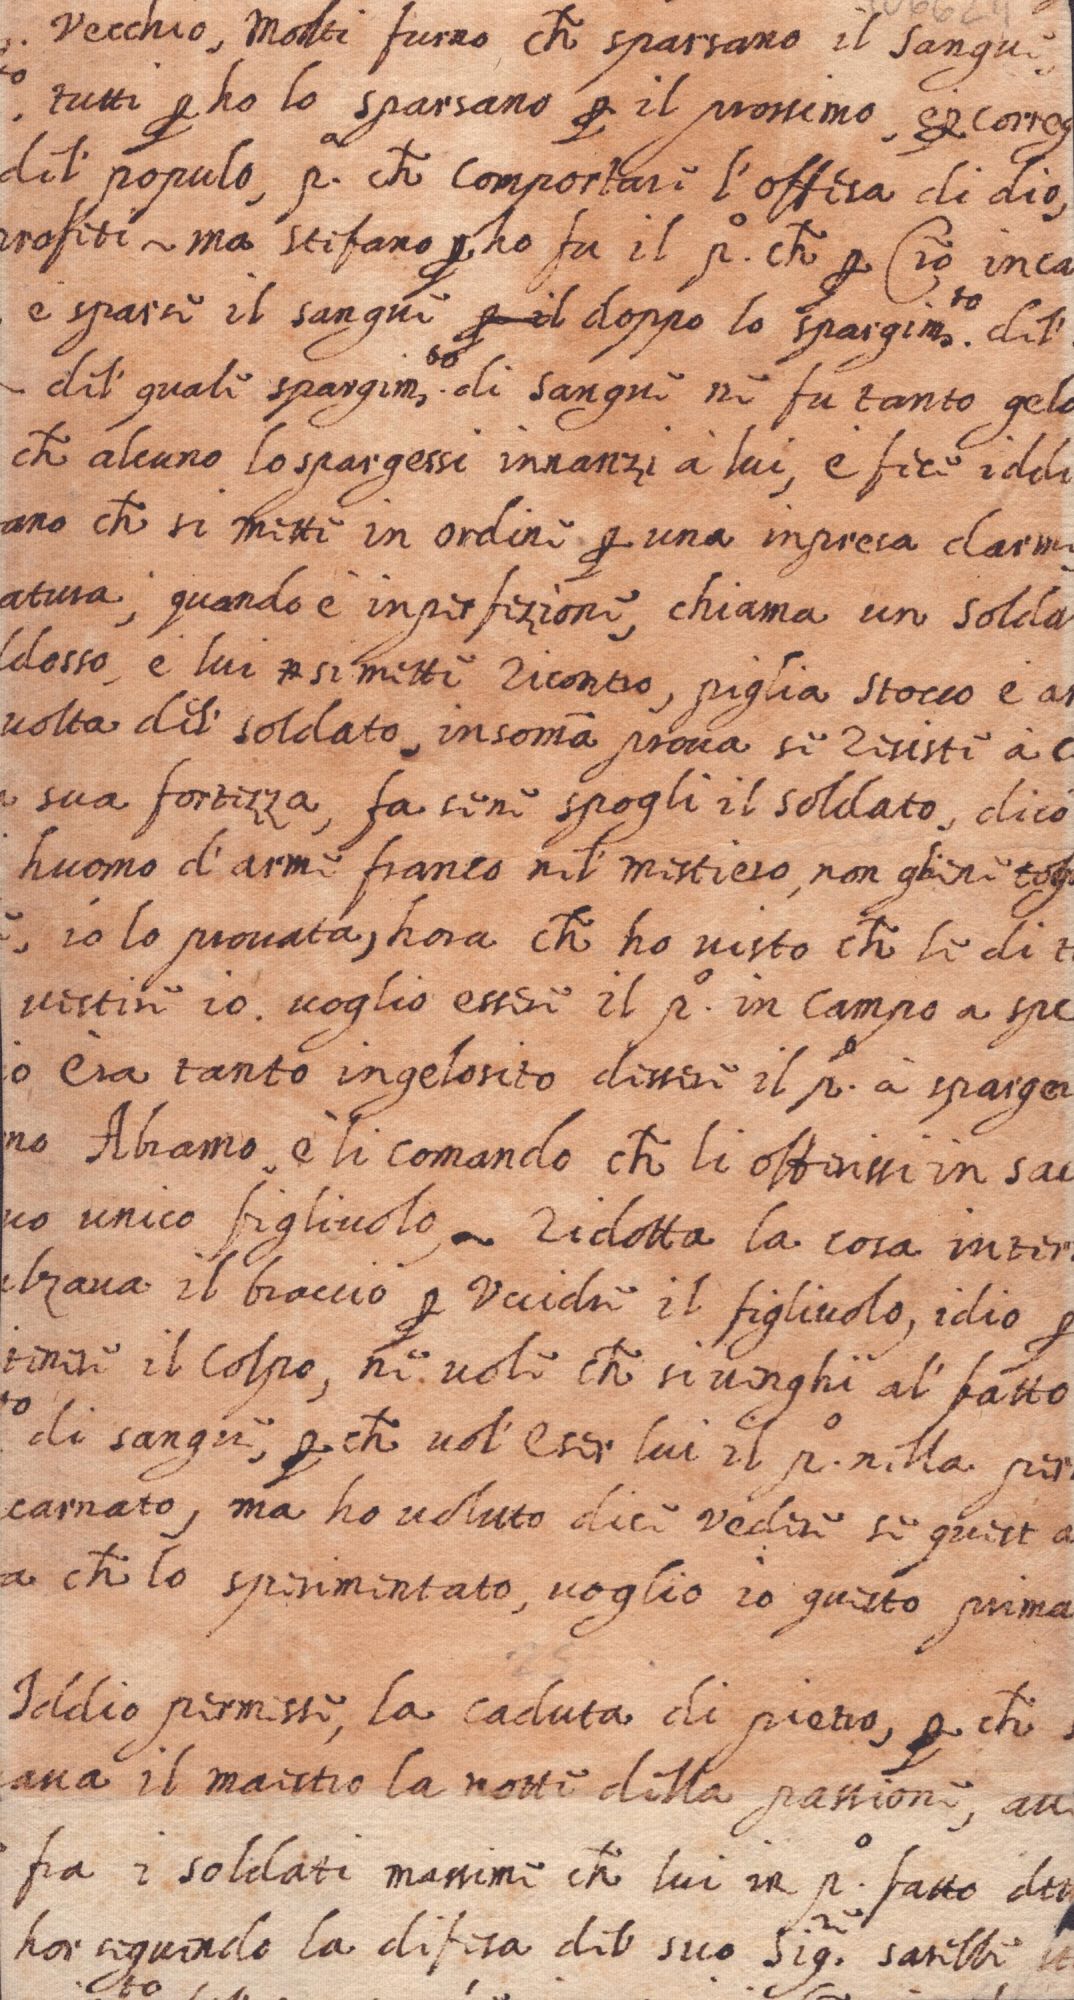 Vecchio, Molti furno ch̃ sparsano il sangue
to, tutti ꝑho lo sparsano ꝑ il prossimo, e ꝑ correg
del' populo, pa. ch̃ comportare l'offesa di dio,
profeti ~ ma stefano ꝑho fu il po. ch̃ ꝑ Cr̃o inca
e sparse il sangue ꝑ il doppo lo spargim.to del'
~ del' quale spargim.to di sangue ne fu tanto gelo
ch̃ alcuno lo spargessi innanzi à lui, e fece iddi
ano ch̃ si mette in ordine ꝑ una inpresa darme
atura, quando è inperfezione, chiama un solda
ldosso, e lui si mette ricontro, piglia stocco e ar
volta del' soldato, insom̃a prova se resiste à c
sua fortezza, fa sene spogli il soldato, dico
huomo d'arme franco nel' mestiero, non gliene togl
io lo provata, hora ch̃ ho visto ch̃ le di t
vestire io. voglio essere il po. in campo a spe
io èra tanto ingelosito dessere il po. à sparger
no Abramo, e li comando ch̃ li offerissi in sac
uo unico figliuolo, ~ ridotta la cosa inter
alzava il braccio ꝑ Uccidre il figliuolo, idio ꝑ
tenere il colpo, ne vole ch̃ si venghi al' fatto
to di sangue, ꝑch̃ vol' eser lui il po. nella per
carnato, ma ho voluto dice vedere se quest a
a ch̃ lo sperimentato, voglio io questo prima
Iddio permesse, la caduta di pietro, ꝑch̃ s
ava il maestro la notte della passione, au
fra i soldati massime ch̃ lui in po. fatto
hor seguendo la difesa del' suo Sig.re sarebbe